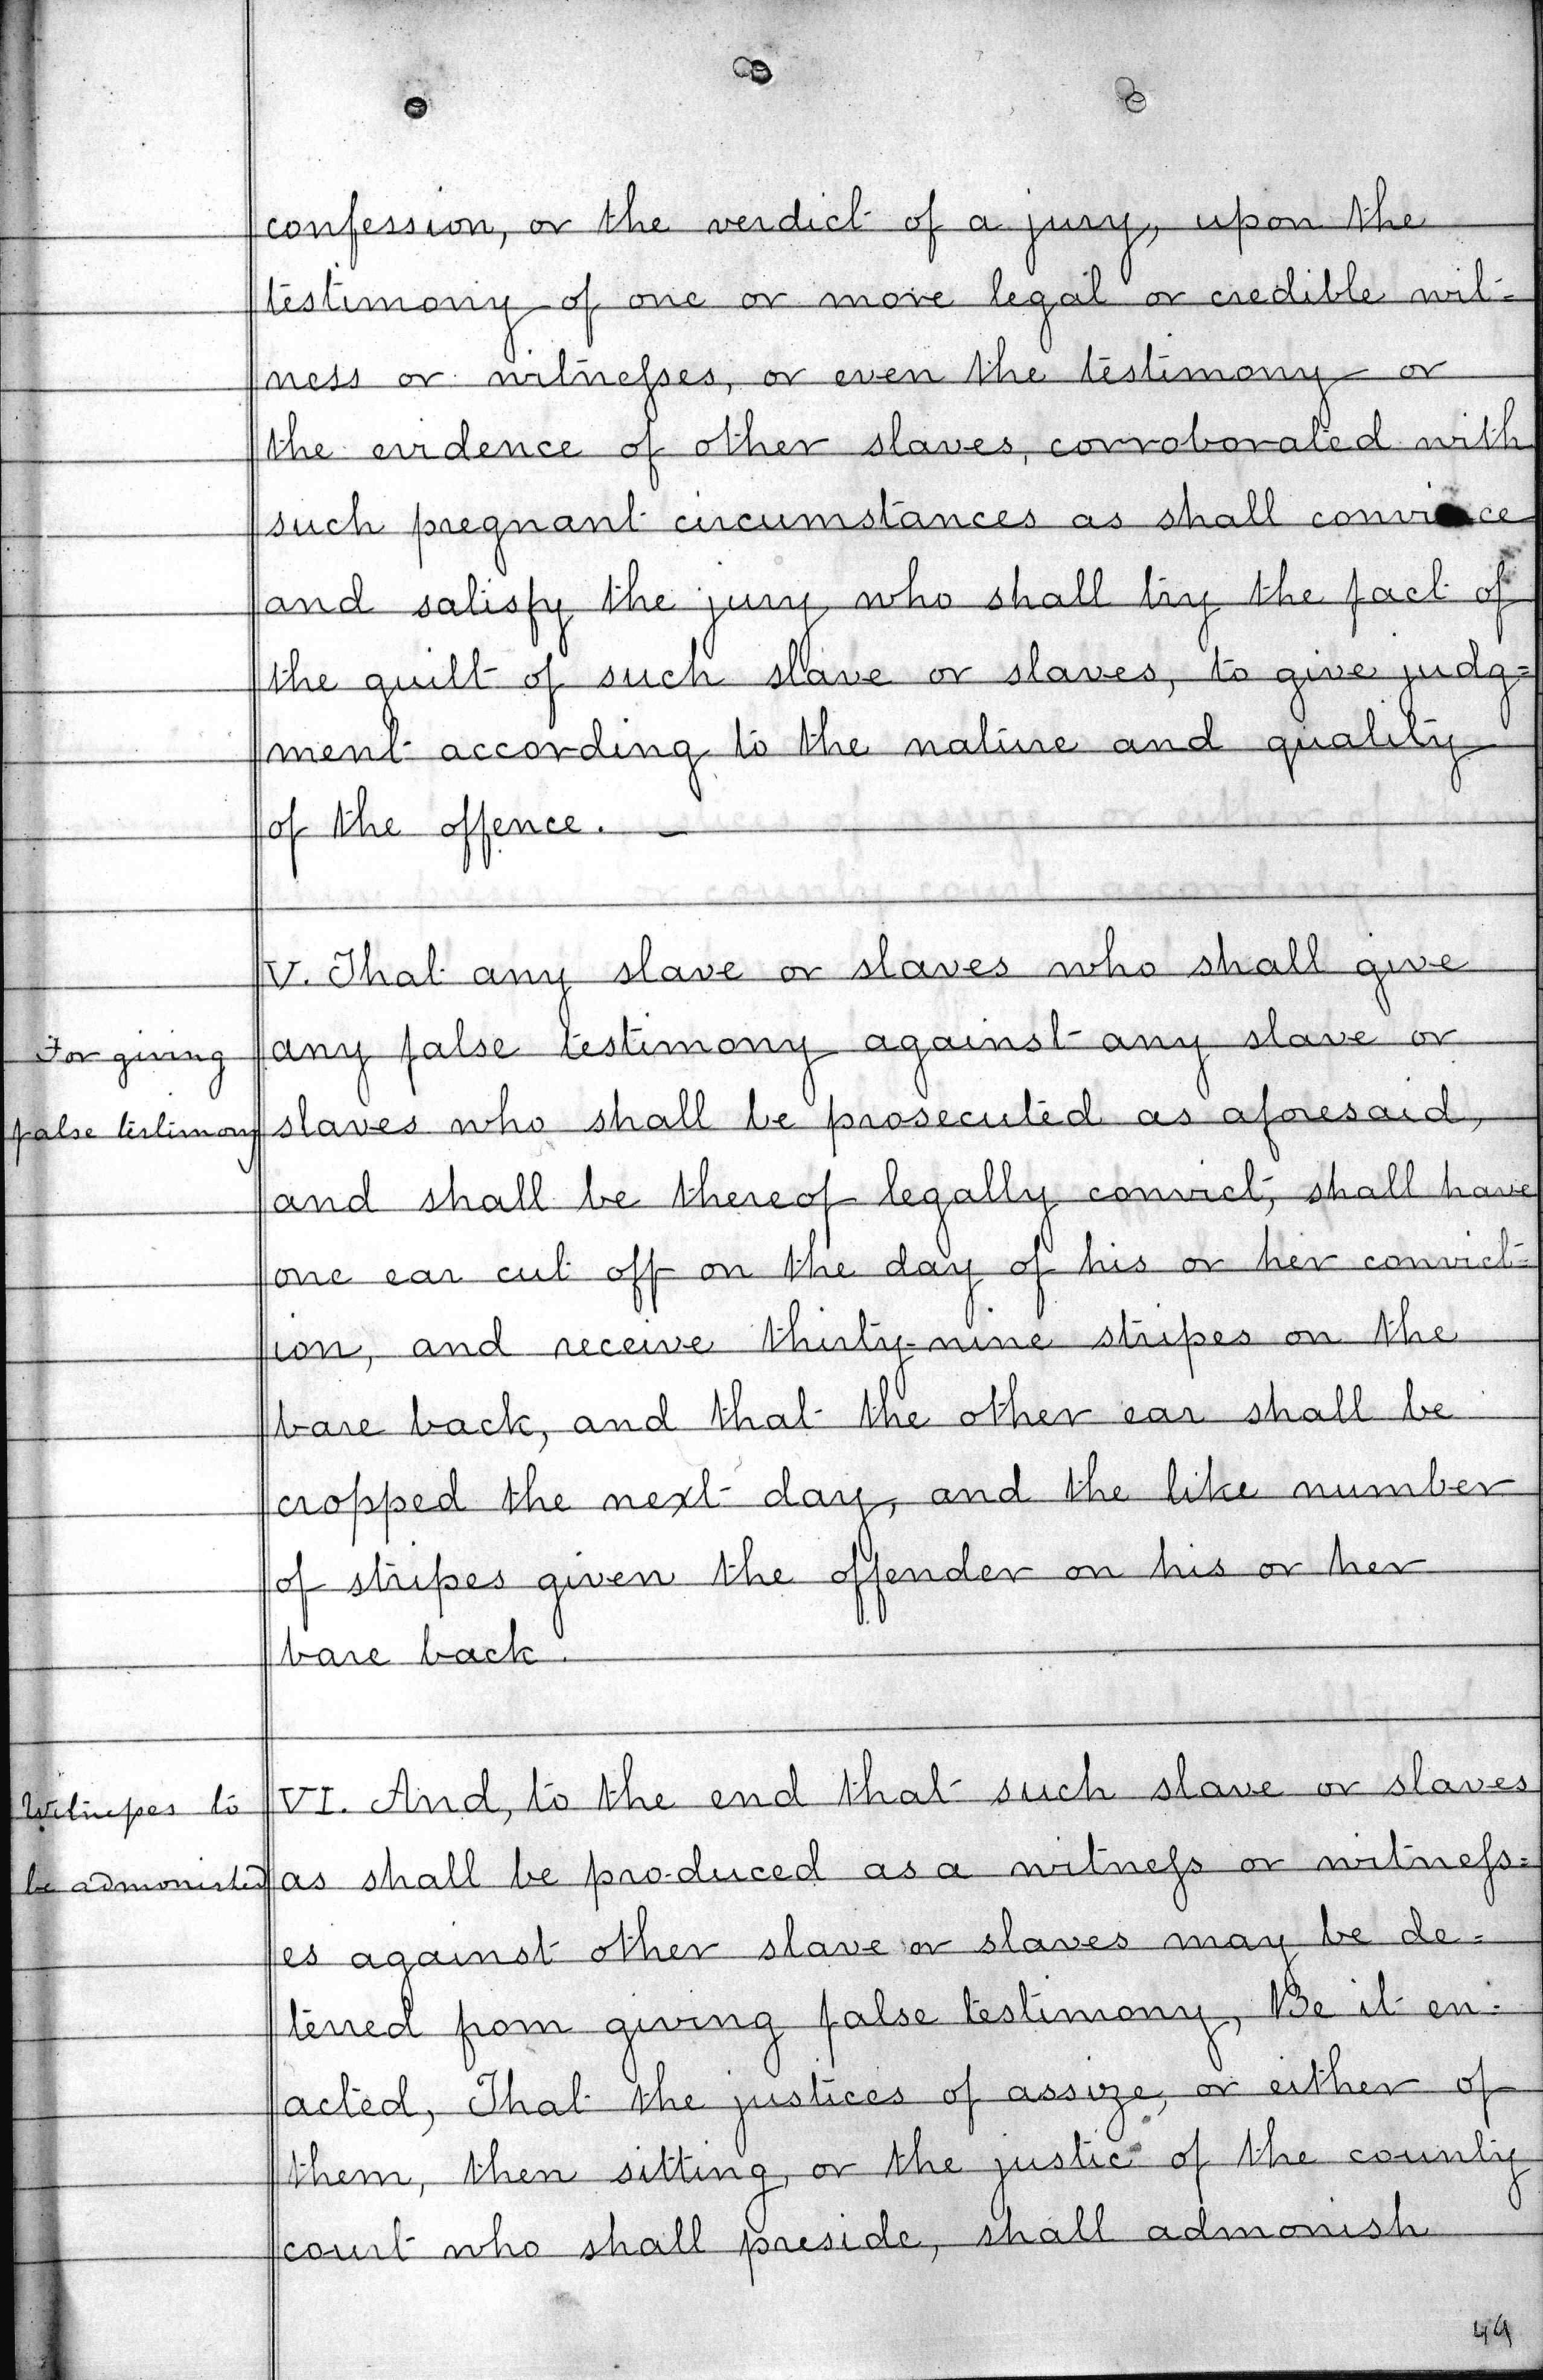 confession, or the verdict of a jury, upon the
testimony of one or more legal or credible wit=
ness or witneſses, or even the testimony or
the evidence of other slaves, corroborated with
such pregnant circumstances as shall convince
and satisfy the jury who shall try the fact of
the guilt of such slave or slaves, to give judg=
ment according to the nature and quality
of the offence. –
V. That any slave or slaves who shall give
For giving
any false testimony against any slave or
false testimony
slaves who shall be prosecuted as aforesaid,
and shall be thereof legally convict, shall have
one ear cut off on the day of his or her convict=
ion, and receive thirty-nine stripes on the
bare back, and that the other ear shall be
cropped the next day, and the like number
of stripes given the offender on his or her
bare back.
Witneſses to
VI. And, to the end that such slave or slaves
be admonished
as shall be pro-duced as a witneſs or witneſs=
es against other slave or slaves may be de=
terred from giving false testimony, Be it en=
acted, That the justices of assize, or either of
them, then sitting, or the justice of the county
court who shall preside, shall admonish
49